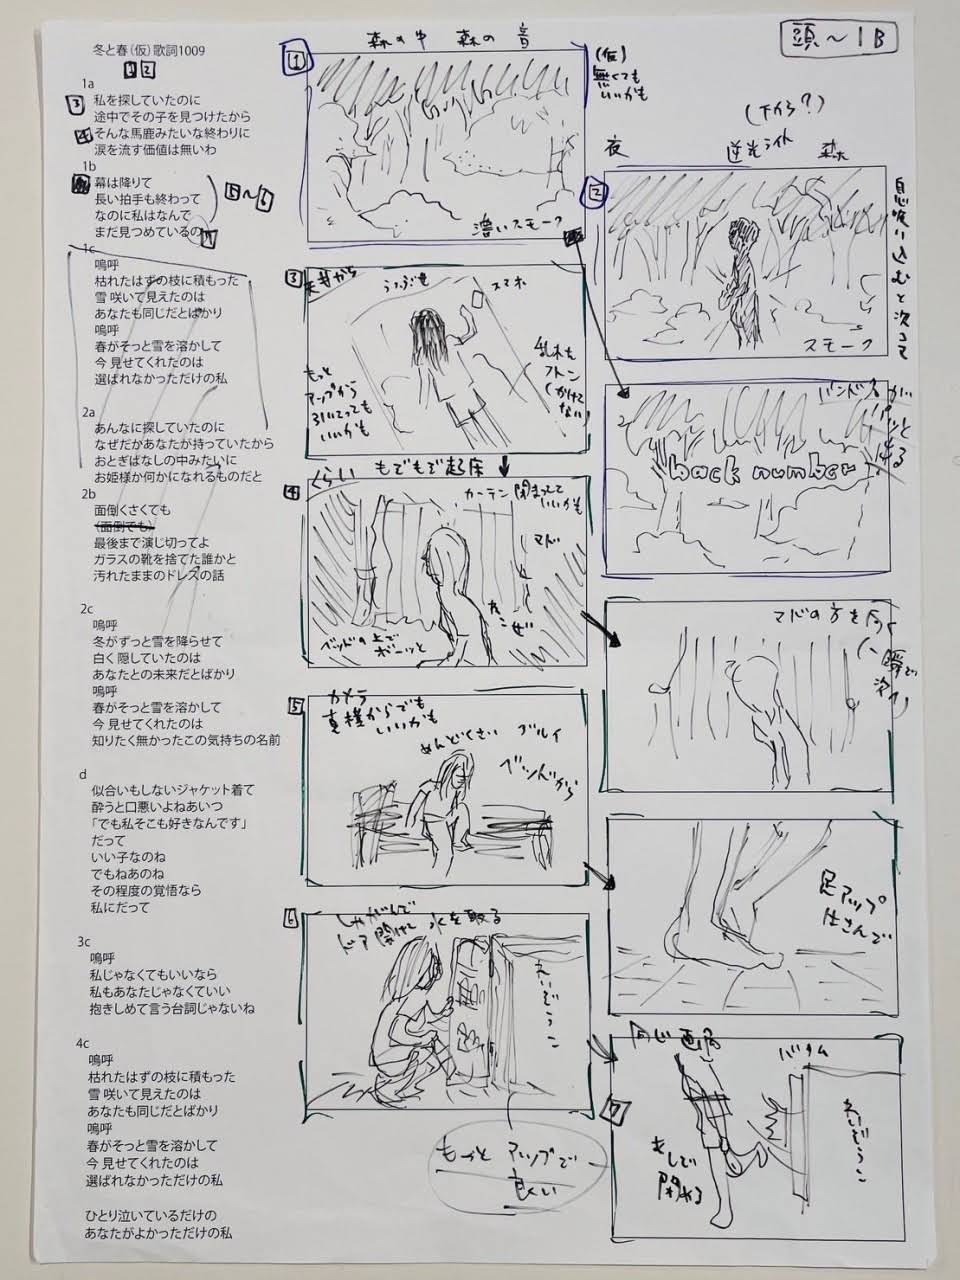 冬と春（仮）歌詞1009
1 2
1a
3 私を探していたのに
途中でその子を見つけたから
4 そんな馬鹿みたいな終わりに
涙を流す価値は無いわ
1b
幕は降りて
長い拍手も終わって
なのに私はなんで
まだ見つめているの
5〜6
7
1c
嗚呼
枯れたはずの枝に積もった
雪 咲いて見えたのは
あなたも同じだとばかり
嗚呼
春がそっと雪を溶かして
今 見せてくれたのは
選ばれなかっただけの私
2a
あんなに探していたのに
なぜだかあなたが持っていたから
おとぎばなしの中みたいに
お姫様か何かになれるものだと
2b
面倒くさくても
（面倒でも）
最後まで演じ切ってよ
ガラスの靴を捨てた誰かと
汚れたままのドレスの話
2c
嗚呼
冬がずっと雪を降らせて
白く隠していたのは
あなたとの未来だとばかり
嗚呼
春がそっと雪を溶かして
今 見せてくれたのは
知りたく無かったこの気持ちの名前
d
似合いもしないジャケット着て
酔うと口悪いよねあいつ
「でも私そこも好きなんです」
だって
いい子なのね
でもねあのね
その程度の覚悟なら
私にだって
3c
嗚呼
私じゃなくてもいいなら
私もあなたじゃなくていい
抱きしめて言う台詞じゃないね
4c
嗚呼
枯れたはずの枝に積もった
雪 咲いて見えたのは
あなたも同じだとばかり
嗚呼
春がそっと雪を溶かして
今 見せてくれたのは
選ばれなかっただけの私
ひとり泣いているだけの
あなたがよかっただけの私
頭〜1B
1
森の中 森の音
(仮)
無くても
いいかも
濃いスモーク
2
夜
逆光ライト
(下から?)
森
息吸い込むと次コマ
スモーク
バンド名が
パッと
出る
back number
3
天井から
うつぶせ
スマホ
もっと
アップから
引いてっても
いいかも
乱れた
フトン
(かけて
ない)
4
くらい
もぞもぞ起床
カーテン閉まってて
いいかも
マド
ベッドの上で
ボーッと
マドの方を向く
(一瞬で
次へ)
5
カメラ
真横からでも
いいかも
めんどくさい
ダルイ
ベッドから
足アップ
はさんで
6
しゃがんで
ドア開けて 水を取る
れいぞうこ
もっと アップで
良い
7
同じ画角
バタム
れいぞうこ
あしで
閉める